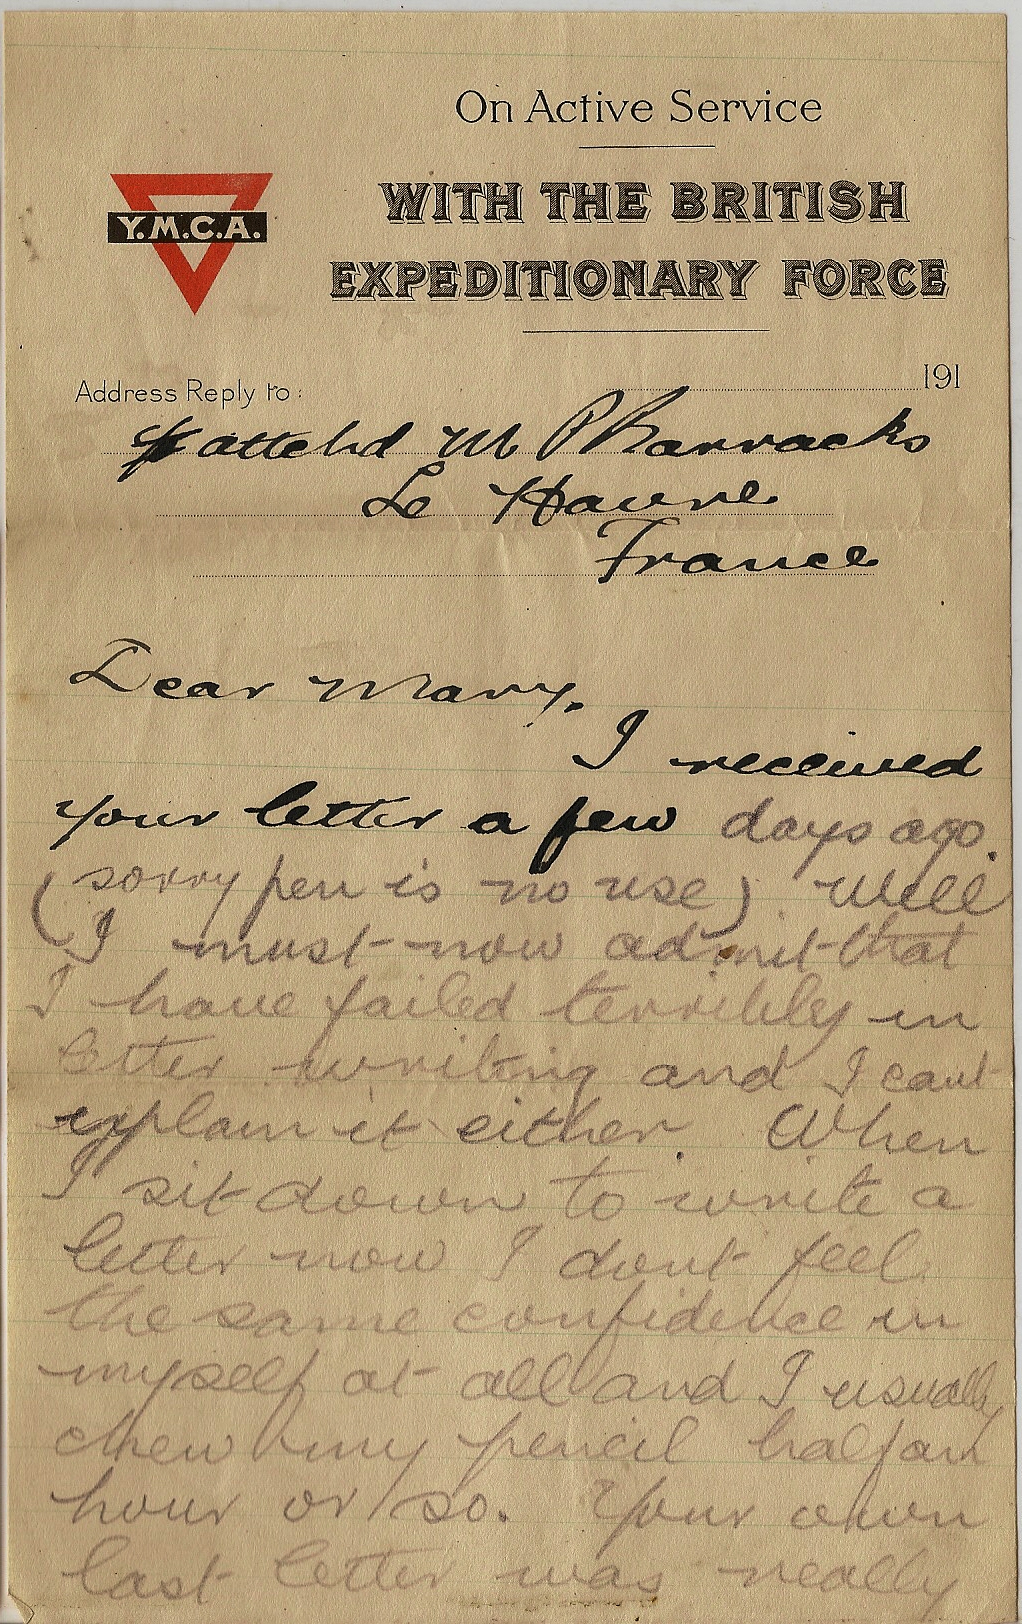 On Active Service
WITH THE BRITISH
EXPEDITIONARY FORCE
Y.M.C.A.
Address Reply to:
191
attchd M P Barracks
Le Havre
France
Dear Mary.
I received
your letter a few days ago.
(sorry pen is no use) Well
I must now admit that
I have failed terribly in
letter writing and I cant
explain it either. When
I sit down to write a
letter now I dont feel
the same confidence in
myself at all and I usually
chew my pencil half an
hour or so. Your own
last letter was really